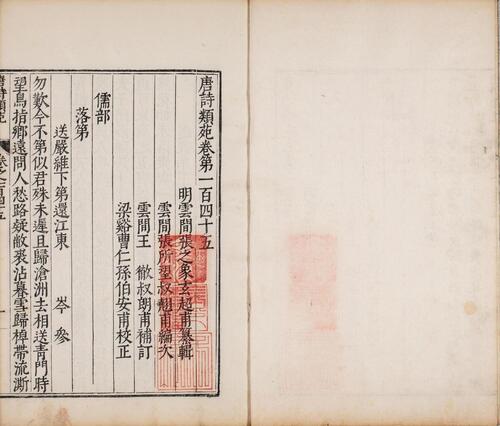 唐詩類苑卷第一百四十五
明雲間張之象玄超甫纂輯
雲間張所望叔翹甫編次
雲間王徹叔朗甫補訂
梁谿曹仁孫伯安甫校正
儒部
落第
送嚴維下第還江東 岑參
勿歎今不第似君殊未遲且歸滄洲去相送青門時
望鳥指鄉遠問人愁路疑敝裘沾暮雪歸棹帶流澌
唐詩類苑 卷之一百四十五 一